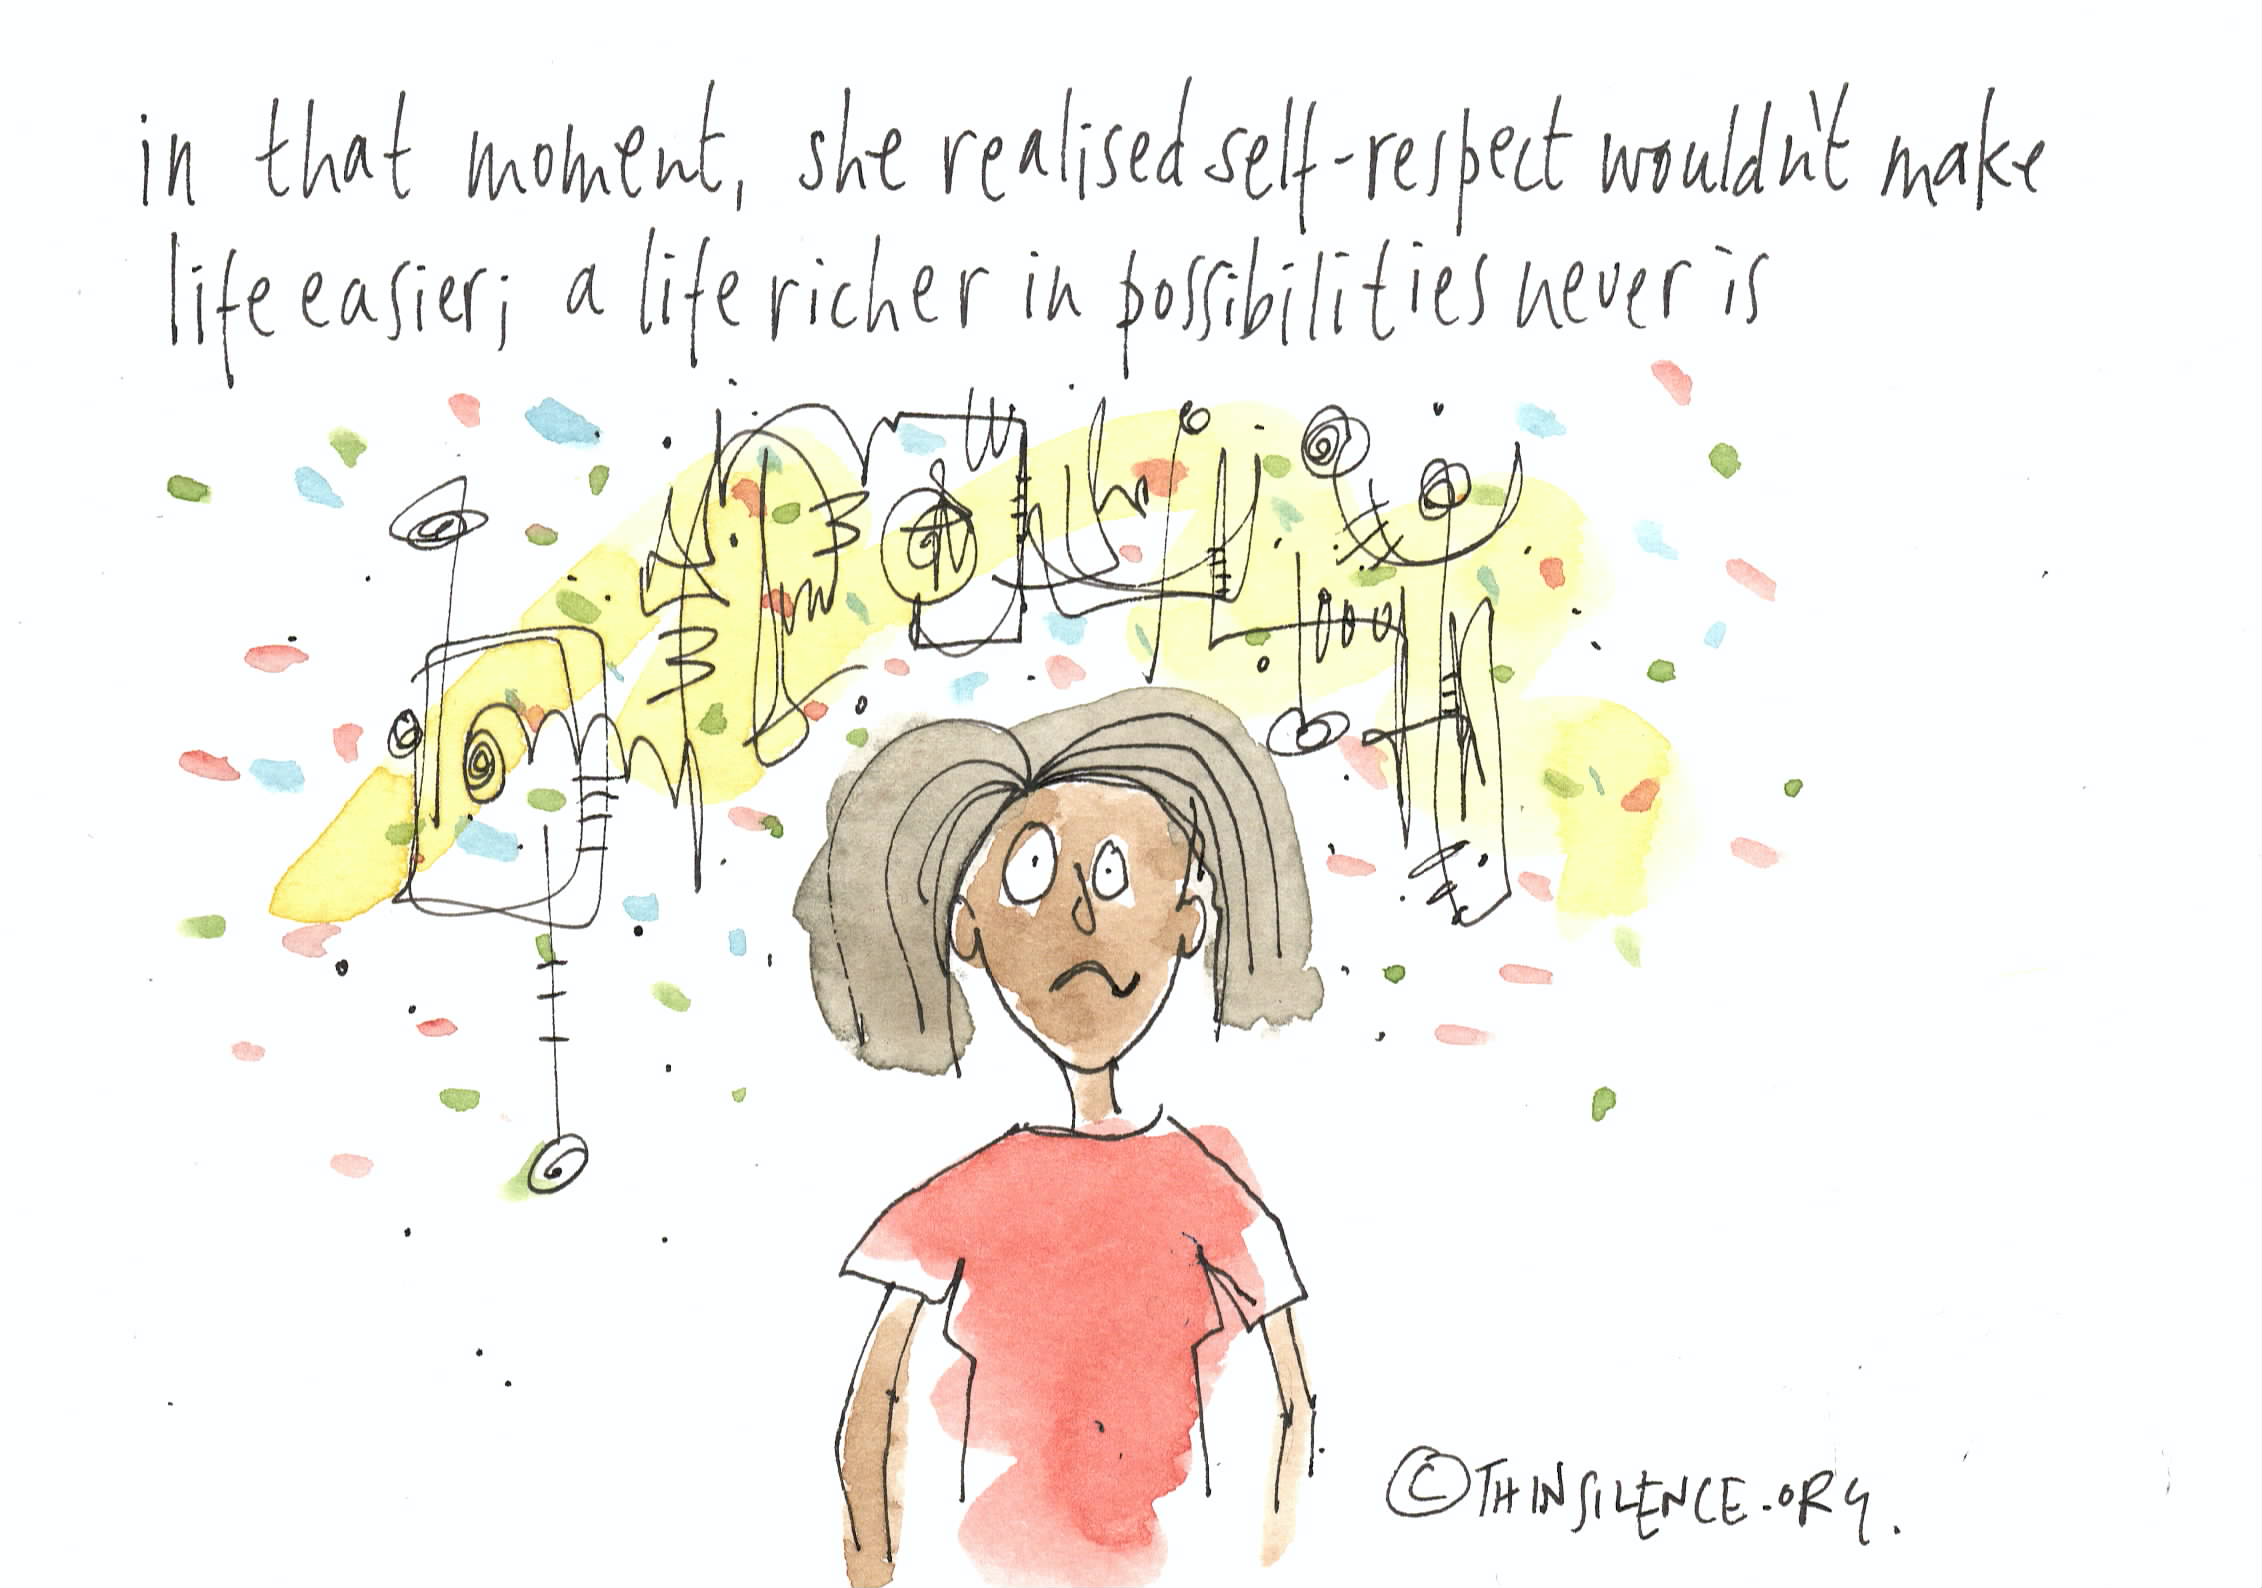 in that moment, she realised self-respect wouldn't make
life easier; a life richer in possibilities never is
©THINSILENCE.ORG.